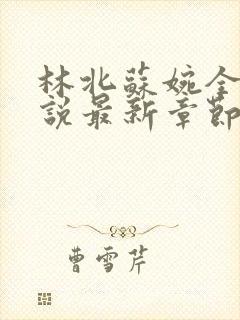 林北蘇婉全
說最新章節
曹雪芹